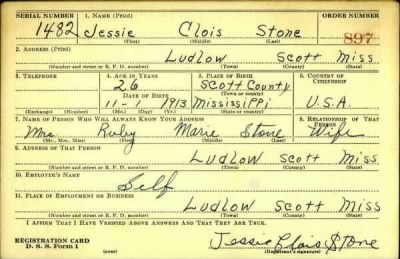 SERIAL NUMBER 1. NAME (Print) ORDER NUMBER
1482 Jessie Clois Stone 897
(First) (Middle) (Last)
2. ADDRESS (Print)
Ludlow Scott Miss
(Number and street or R. F. D. number) (Town) (County) (State)
3. TELEPHONE 4. AGE IN YEARS 5. PLACE OF BIRTH 6. COUNTRY OF CITIZENSHIP
26 Scott County
DATE OF BIRTH (Town or county)
11-1 1913 Mississippi U.S.A.
(Exchange) (Number) (Mo.) (Day) (Yr.) (State or country)
7. NAME OF PERSON WHO WILL ALWAYS KNOW YOUR ADDRESS 8. RELATIONSHIP OF THAT PERSON
Mrs. Ruby Marie Stone Wife
(Mr., Mrs., Miss) (First) (Middle) (Last)
9. ADDRESS OF THAT PERSON
Ludlow Scott Miss
(Number and street or R. F. D. number) (Town) (County) (State)
10. EMPLOYER'S NAME
Self
11. PLACE OF EMPLOYMENT OR BUSINESS
Ludlow Scott Miss
(Number and street or R. F. D. number) (Town) (County) (State)
I AFFIRM THAT I HAVE VERIFIED ABOVE ANSWERS AND THAT THEY ARE TRUE.
REGISTRATION CARD
D. S. S. Form 1 Jessie Clois Stone
(Registrant's signature)